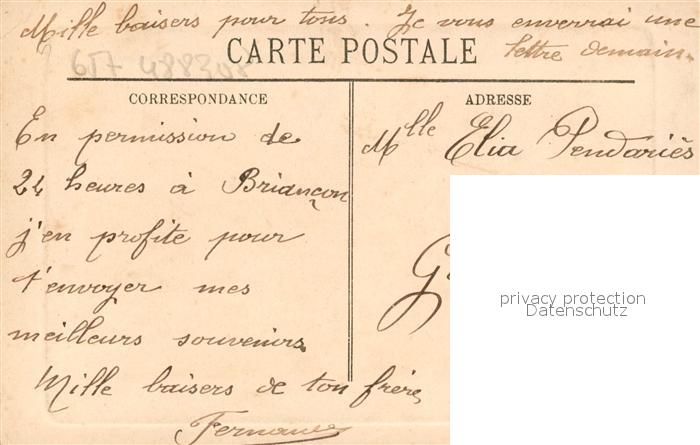 Mille baisers pour tous. Je vous enverrai une
lettre demain.
CARTE POSTALE
CORRESPONDANCE
En permission de
24 heures à Briançon
j'en profite pour
t'envoyer mes
meilleurs souvenirs
Mille baisers de ton frère,
Fernand
ADRESSE
Mlle Elia Pendariès
privacy protection
Datenschutz